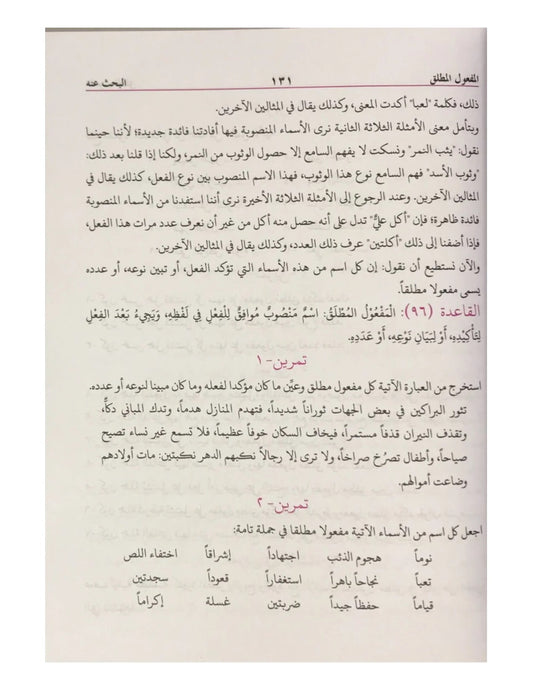 المفعول المطلق ١٣١ البحث عنه
ذلك، فكلمة "لعبا" أكدت المعنى، وكذلك يقال في المثالين الآخرين.
وبتأمل معنى الأمثلة الثلاثة الثانية نرى الأسماء المنصوبة فيها أفادتنا فائدة جديدة؛ لأننا حينما
نقول: "يثب النمر" ونسكت لا يفهم السامع إلا حصول الوثوب من النمر، ولكنا إذا قلنا بعد ذلك:
"وثوب الأسد" فهم السامع نوع هذا الوثوب، فهذا الاسم المنصوب بين نوع الفعل، كذلك يقال في
المثالين الآخرين. وعند الرجوع إلى الأمثلة الثلاثة الأخيرة نرى أننا استفدنا من الأسماء المنصوبة
فائدة ظاهرة؛ فإن "أكل عليٌّ" تدل على أنه حصل منه أكل من غير أن نعرف عدد مرات هذا الفعل،
فإذا أضفنا إلى ذلك "أكلتين" عرف ذلك العدد، وكذلك يقال في المثالين الآخرين.
والآن نستطيع أن نقول: إن كل اسم من هذه الأسماء التي تؤكد الفعل، أو تبين نوعه، أو عدده
يسمى مفعولا مطلقاً.
القاعدة (٩٦): الْمَفْعُوْلُ المُطْلَقُ: اسْمٌ مَنْصُوبٌ مُوَافِقٌ لِلْفِعْلِ فِي لَفْظِهِ، وَيَجِيءُ بَعْدَ الفِعْلِ
لِتَأْكِيْدِهِ، أَوْ لِبَيَانِ نَوْعِهِ، أَوْ عَدَدِهِ.
تمرين-١
استخرج من العبارة الآتية كل مفعول مطلق وعيِّن ما كان مؤكدا لفعله وما كان مبينا لنوعه أو عدده.
تثور البراكين في بعض الجهات ثوراناً شديداً، فتهدم المنازل هدماً، وتدك المباني دكّاً،
وتقذف النيران قذفاً مستمراً، فيخاف السكان خوفاً عظيماً، فلا تسمع غير نساء تصيح
صياحاً، وأطفال تصرُخ صراخاً، ولا ترى إلا رجالاً نكبهم الدهر نكبتين: مات أولادهم
وضاعت أموالهم.
تمرين-٢
اجعل كل اسم من الأسماء الآتية مفعولا مطلقا في جملة تامة:
نوماً هجوم الذئب اجتهاداً إشراقاً اختفاء اللص
تعباً نجاحاً باهراً استغفاراً قعوداً سجدتين
قياماً حفظاً جيداً ضربتين غسلة إكراماً